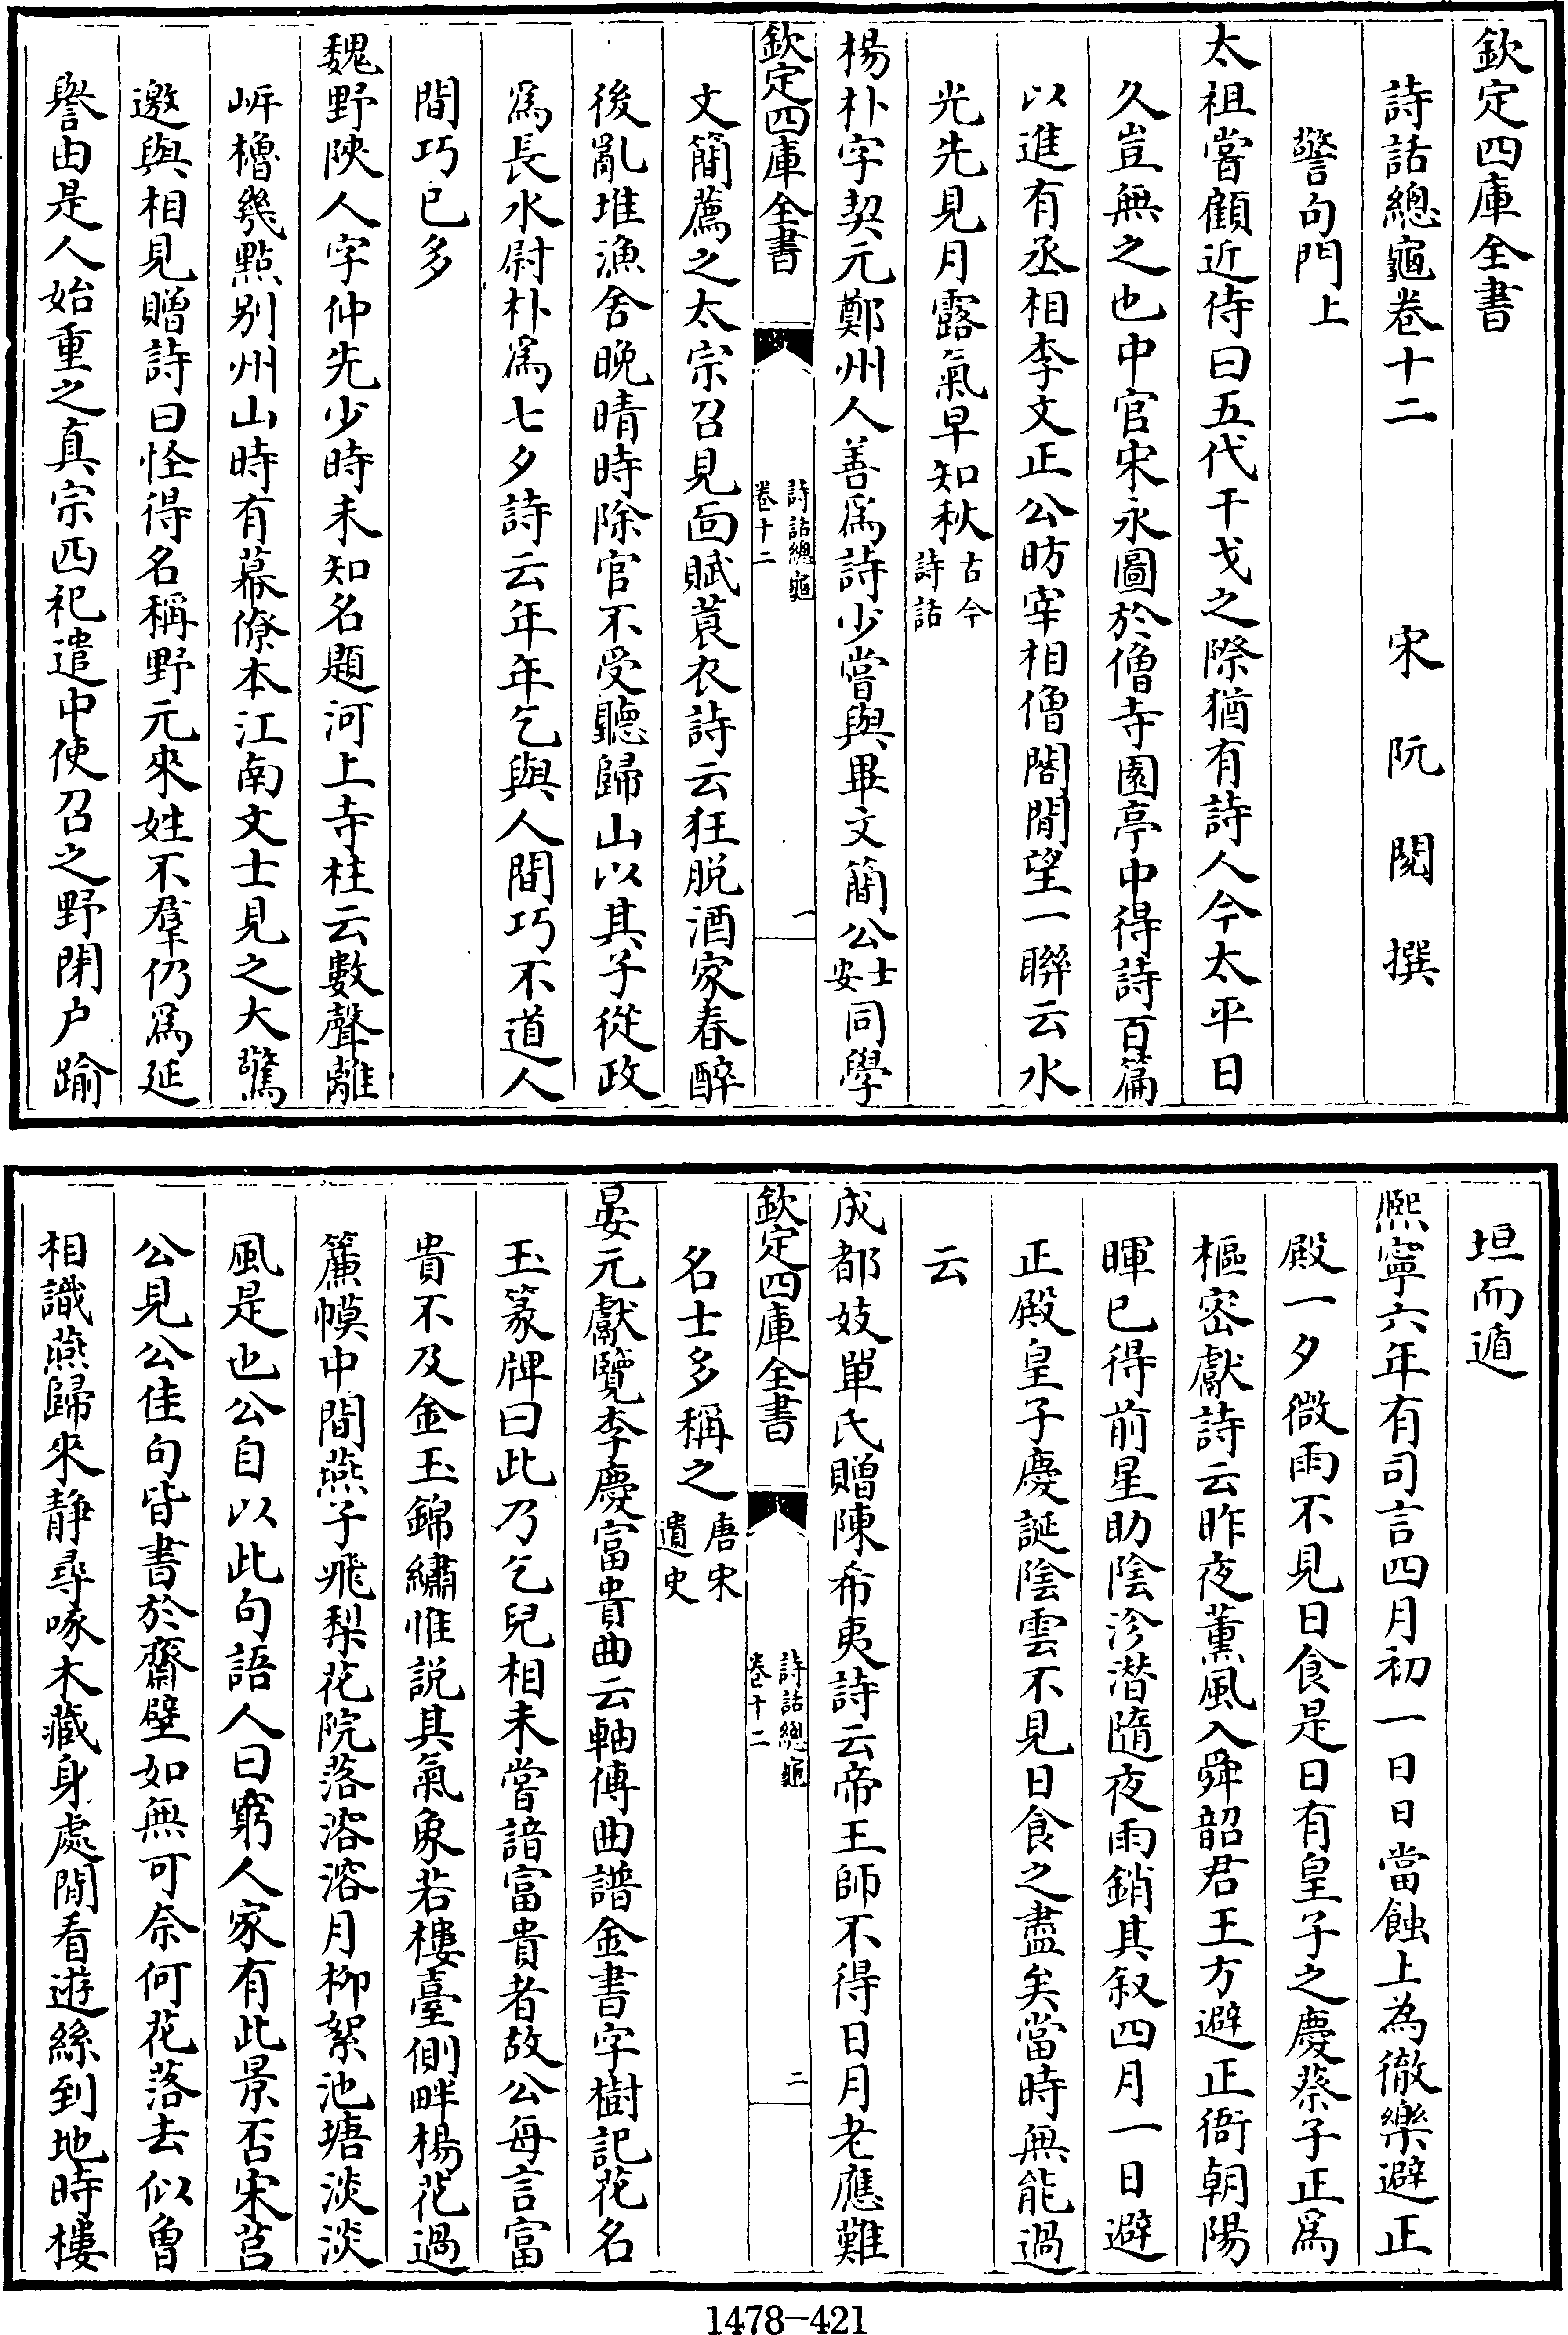 欽定四庫全書
詩話總龜卷十二
宋 阮閱 撰
警句門上
太祖嘗顧近侍曰五代干戈之際猶有詩人今太平日
久豈無之也中官宋永圖於僧寺園亭中得詩百篇
以進有丞相李文正公昉宰相僧閣閒望一聯云水
光先見月露氣早知秋古今詩話
楊朴字契元鄭州人善爲詩少嘗與畢文簡公士安同學
欽定四庫全書
詩話總龜
卷十二
一
文簡薦之太宗召見面賦蓑衣詩云狂脱酒家春醉
後亂堆漁舍晚晴時除官不受聽歸山以其子從政
爲長水尉朴爲七夕詩云年年乞與人間巧不道人
間巧已多
魏野陜人字仲先少時未知名題河上寺柱云數聲離
岍櫓幾點别州山時有幕僚本江南文士見之大驚
邀與相見贈詩曰怪得名稱野元來姓不羣仍爲延
譽由是人始重之真宗西祀遣中使召之野閉户踰
垣而遁
熈寧六年有司言四月初一日日當蝕上為徹樂避正
殿一夕微雨不見日食是日有皇子之慶蔡子正爲
樞密獻詩云昨夜薰風入舜韶君王方避正衙朝陽
暉已得前星助陰沴潛隨夜雨銷其叙四月一日避
正殿皇子慶誕陰雲不見日食之盡矣當時無能過
云
成都妓單氏贈陳希夷詩云帝王師不得日月老應難
欽定四庫全書
詩話總龜
卷十二
二
名士多稱之唐宋遺史
晏元獻覽李慶富貴曲云軸傳曲譜金書字樹記花名
玉篆牌曰此乃乞兒相未嘗諳富貴者故公每言富
貴不及金玉錦繡惟説其氣象若樓臺側畔楊花過
簾幙中間燕子飛梨花院落溶溶月柳絮池塘淡淡
風是也公自以此句語人曰窮人家有此景否宋莒
公見公佳句皆書於齋壁如無可奈何花落去似曾
相識燕歸來静尋啄木藏身處閒看遊絲到地時樓
1478-421